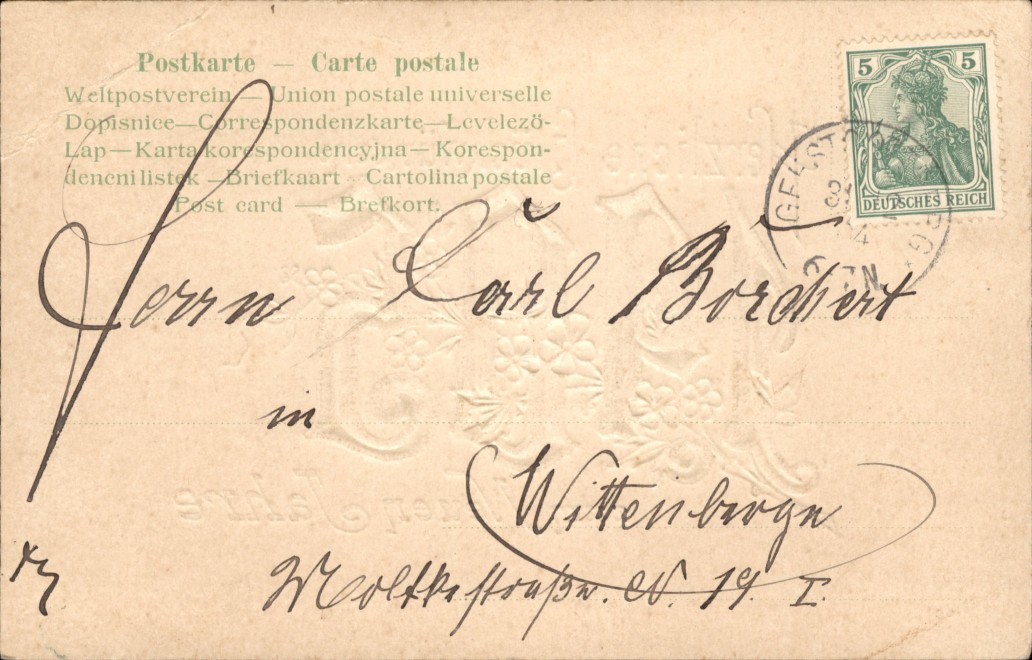 Postkarte — Carte postale
Weltpostverein — Union postale universelle
Dopisnice—Correspondenzkarte—Levelezö-
Lap—Karta korespondencyjna—Korespon-
denčni listek —Briefkaart—Cartolina postale
Post card — Brefkort.
5 5
DEUTSCHES REICH
Herrn Carl Borchert
in
Wittenberge
Moltkestraße. N. 19. I.
Neuen Jahre